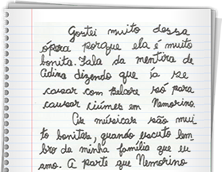 Gostei muito dessa
ópera porque ela é muito
bonita. Fala da mentira de
Adina dizendo que ia se
casar com Belcore só para
causar ciúmes em Nemorino.
As músicas são mui
to bonitas, quando escuto lem
bro de minha família que eu
amo. A parte que Nemorino